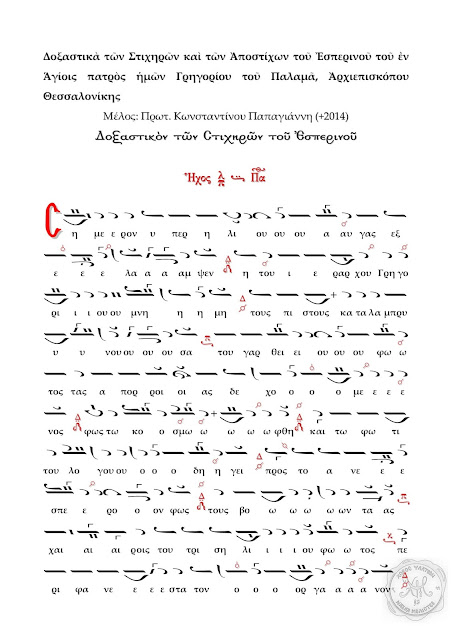 Δοξαστικὰ τῶν Στιχηρῶν καὶ τῶν Ἀποστίχων τοῦ Ἑσπερινοῦ τοῦ ἐν
Ἁγίοις πατρὸς ἡμῶν Γρηγορίου τοῦ Παλαμᾶ, Ἀρχιεπισκόπου
Θεσσαλονίκης
Μέλος: Πρωτ. Κωνσταντίνου Παπαγιάννη (+2014)
Δοξαστικὸν τῶν Στιχηρῶν τοῦ Ἑσπερινοῦ
Ἦχος λ π Πα
Ϲ η με ε ρον υ περ η λι ου ου ου α αυ γας εξ
ε ε ε λα α α αμ ψεν η του ι ε ραρ χου Γρη γο
ρι ι ι ου ου μνη η η μη τους πι στους κα τα λα μπρυ
υ υ νου ου ου ου σα του γαρ θει ει ου ου ου φω ω
τος τας α πορ ροι οι ας δε χο ο ο ο με ε ε ε
νος φως τω κο ο σμω ω ω ω ω φθη και τω φω τι
του λο γου ου ο ο ο δη η γει προς το α νε ε ε
σπε ε ρο ο ον φως τους βο ω ω ω ω ων τα ας
χαι αι αι ροις του τρι ση λι ι ι ι ου φω ω τος πε
ρι φα νε ε ε ε στα τον ο ο ο ορ γα α α α νον